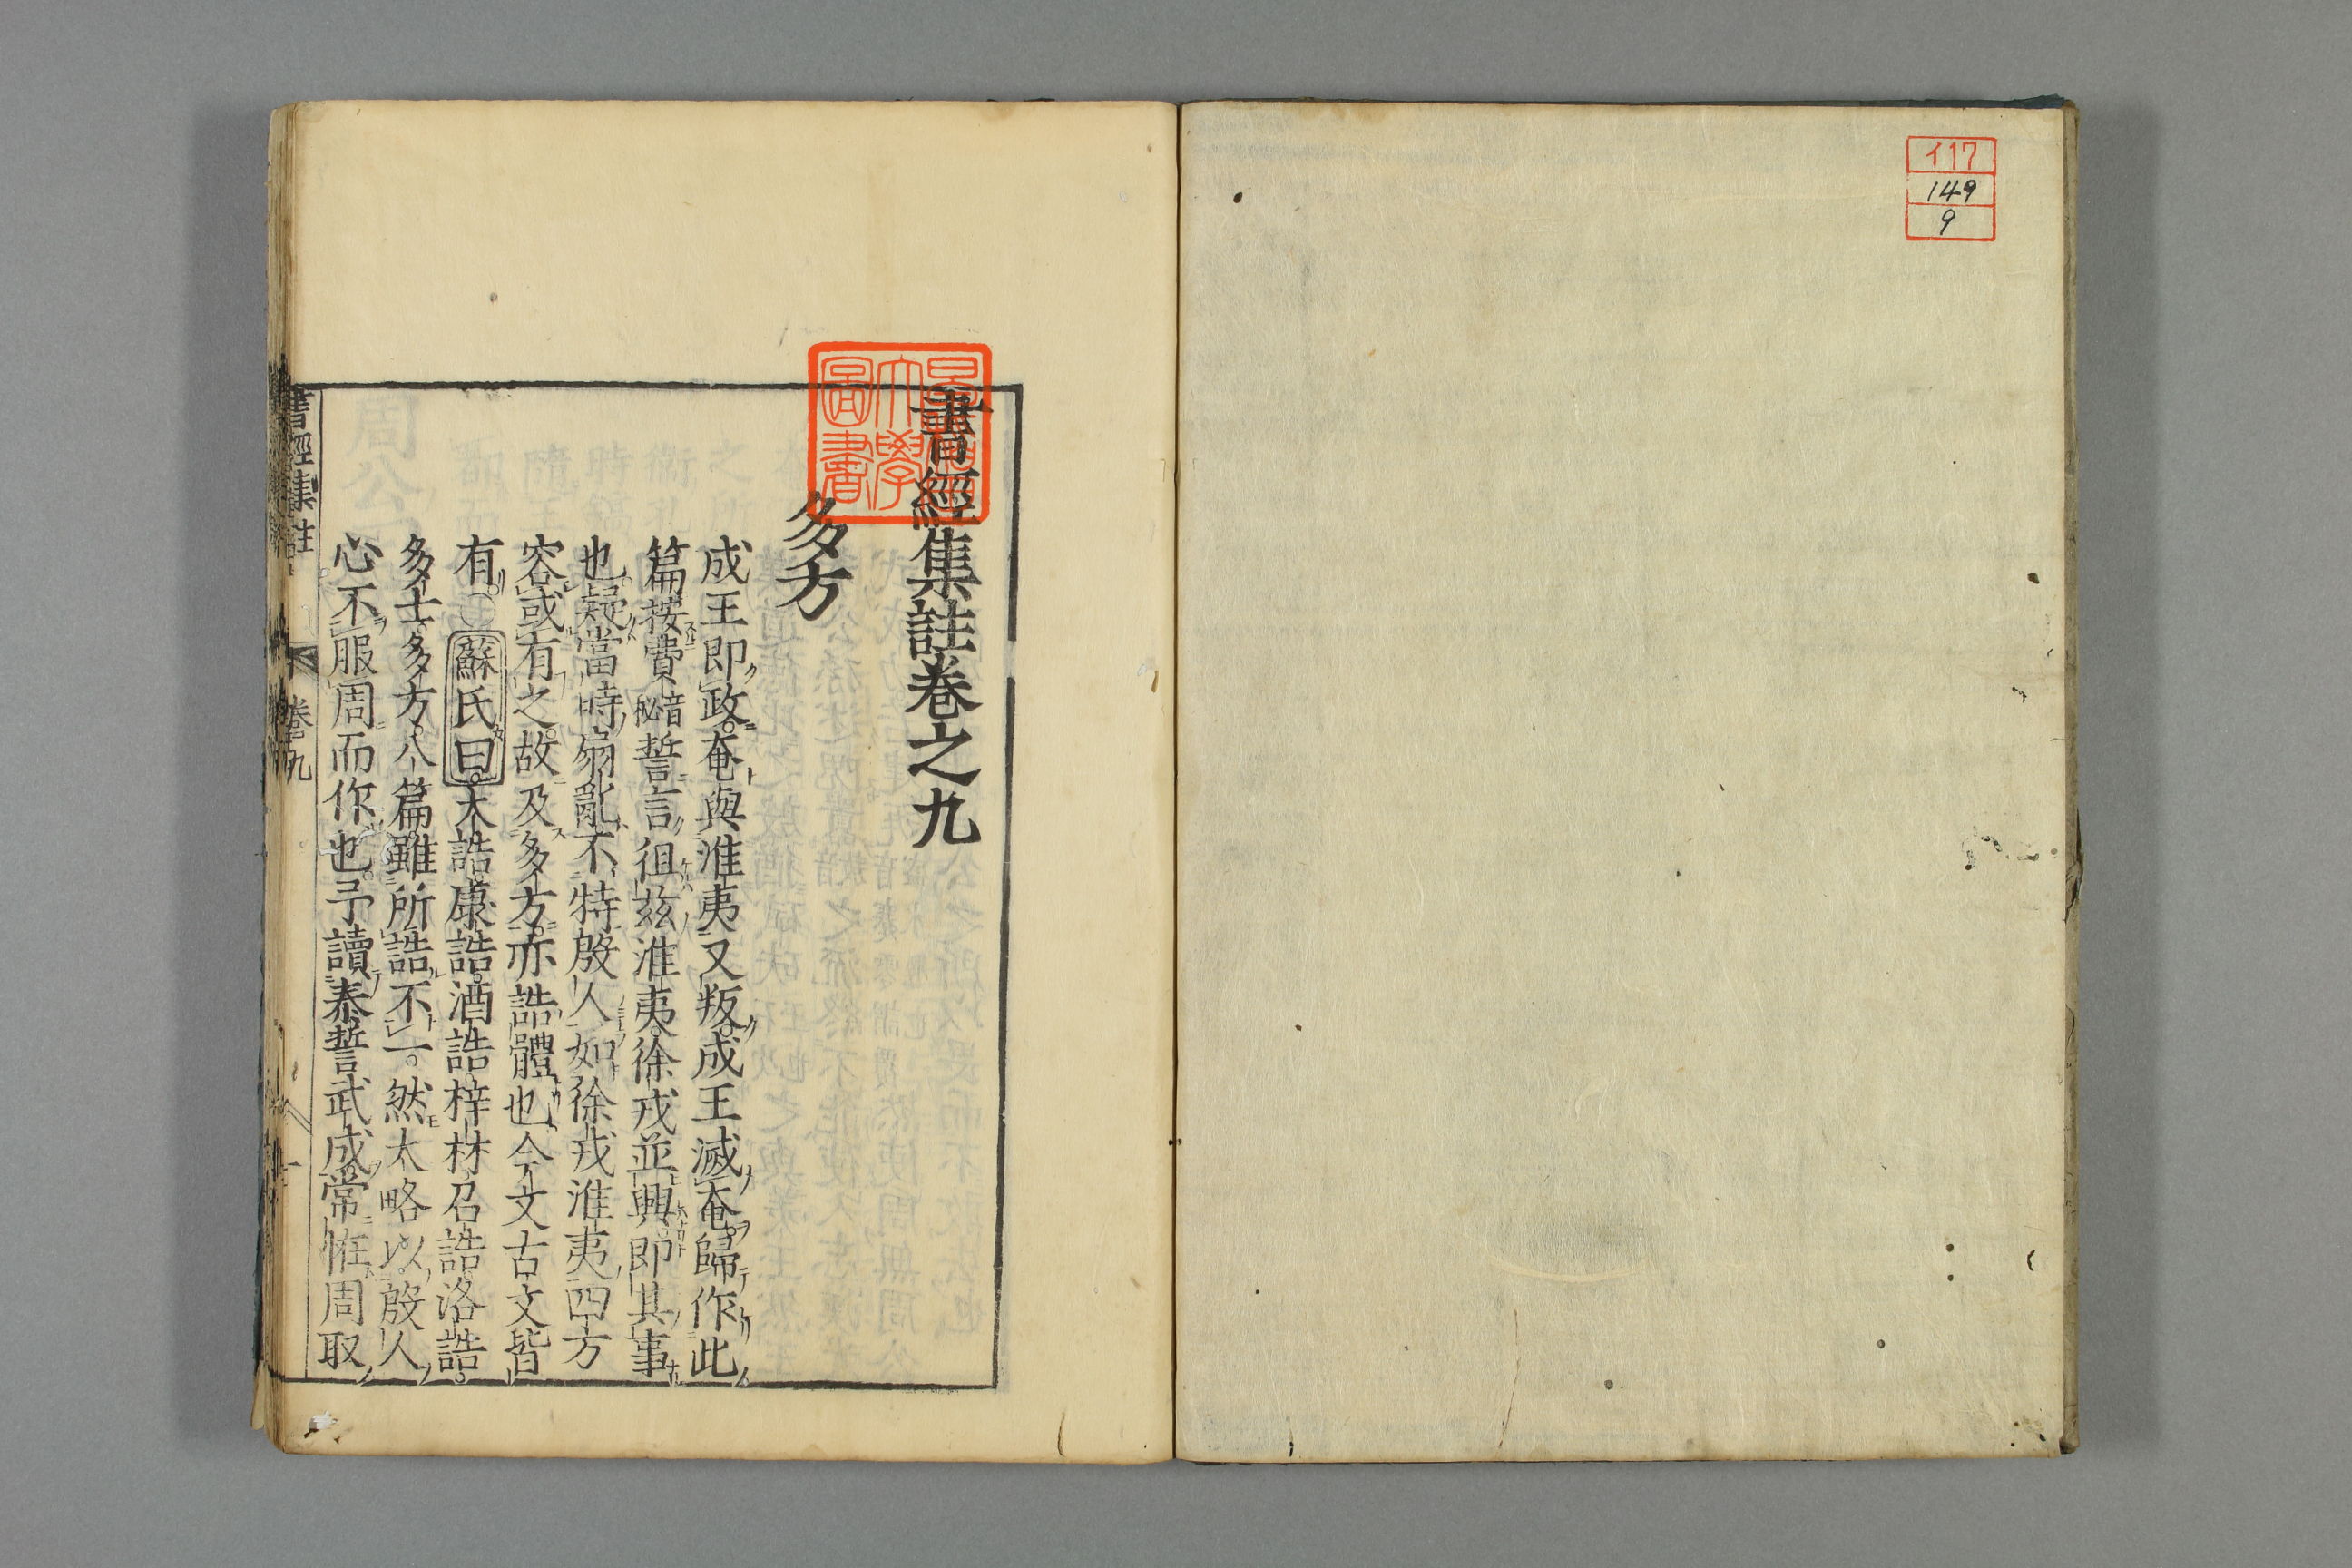 イ17
149
9
書經集註卷之九
多方
成王即政。奄與淮夷又叛。成王滅奄。歸作此
篇。按費音祕誓言徂茲淮夷。徐戎並興。即其事
也。疑當時扇亂。不特殷人。如徐戎淮夷。四方
容或有之。故及多方。亦誥體也。今文古文皆
有。〇蘇氏曰。大誥。康誥。酒誥。梓材。召誥。洛誥。
多士。多方。八篇。雖所誥不一。然大略以殷人
心不服周而作也。予讀泰誓武成。常恠周取
書經集註 卷九 一
早稻田大學圖書